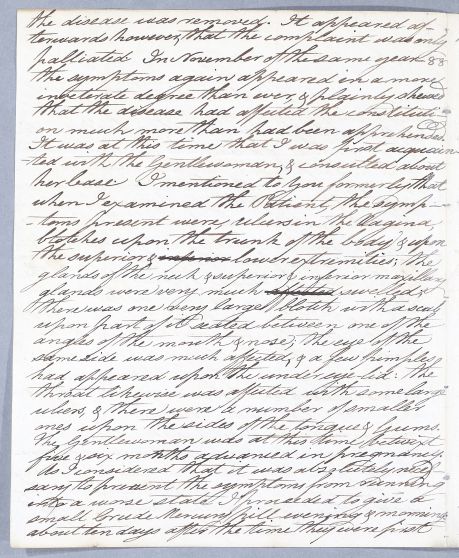 the disease was removed. It appeared af-
terwards however, that the complaint was only
palliated In November of the same year 88
the symptoms again appeared in a more
inveterate degree than ever, & plainly shewed
that the disease had affected the constituti-
on much more than had been apprehended
It was at this time that I was first acquain-
-ted with the Gentlewoman, & consulted about
her case I mentioned to you formerly that
when I examined the Patient, the symp-
-toms present were, ulcers in the vagina,
blotches upon the trunk of the body & upon
the superior & lower extremities; the
glands of the neck & superior & inferior maxillary
glands were very much swelled; &
there was one very large blotch with a scab
upon part of it seated between one of the
angles of the mouth & nose; the eye of the
same side was much affected, & a few pimples
had appeared upon the under eye-lid: the
throat likewise was affected with some large
ulcers, & there were a number of smaller
ones upon the sides of the tongue & Gums.
The Gentlewoman was at this time betwixt
five & six months advanced in pregnancy.
As I considered that it was absolutely neces
sary to prevent the symptoms from running
into a worse state I proceeded to give a
small Crude Mercury pill evening & morning
about ten days after the time they were first